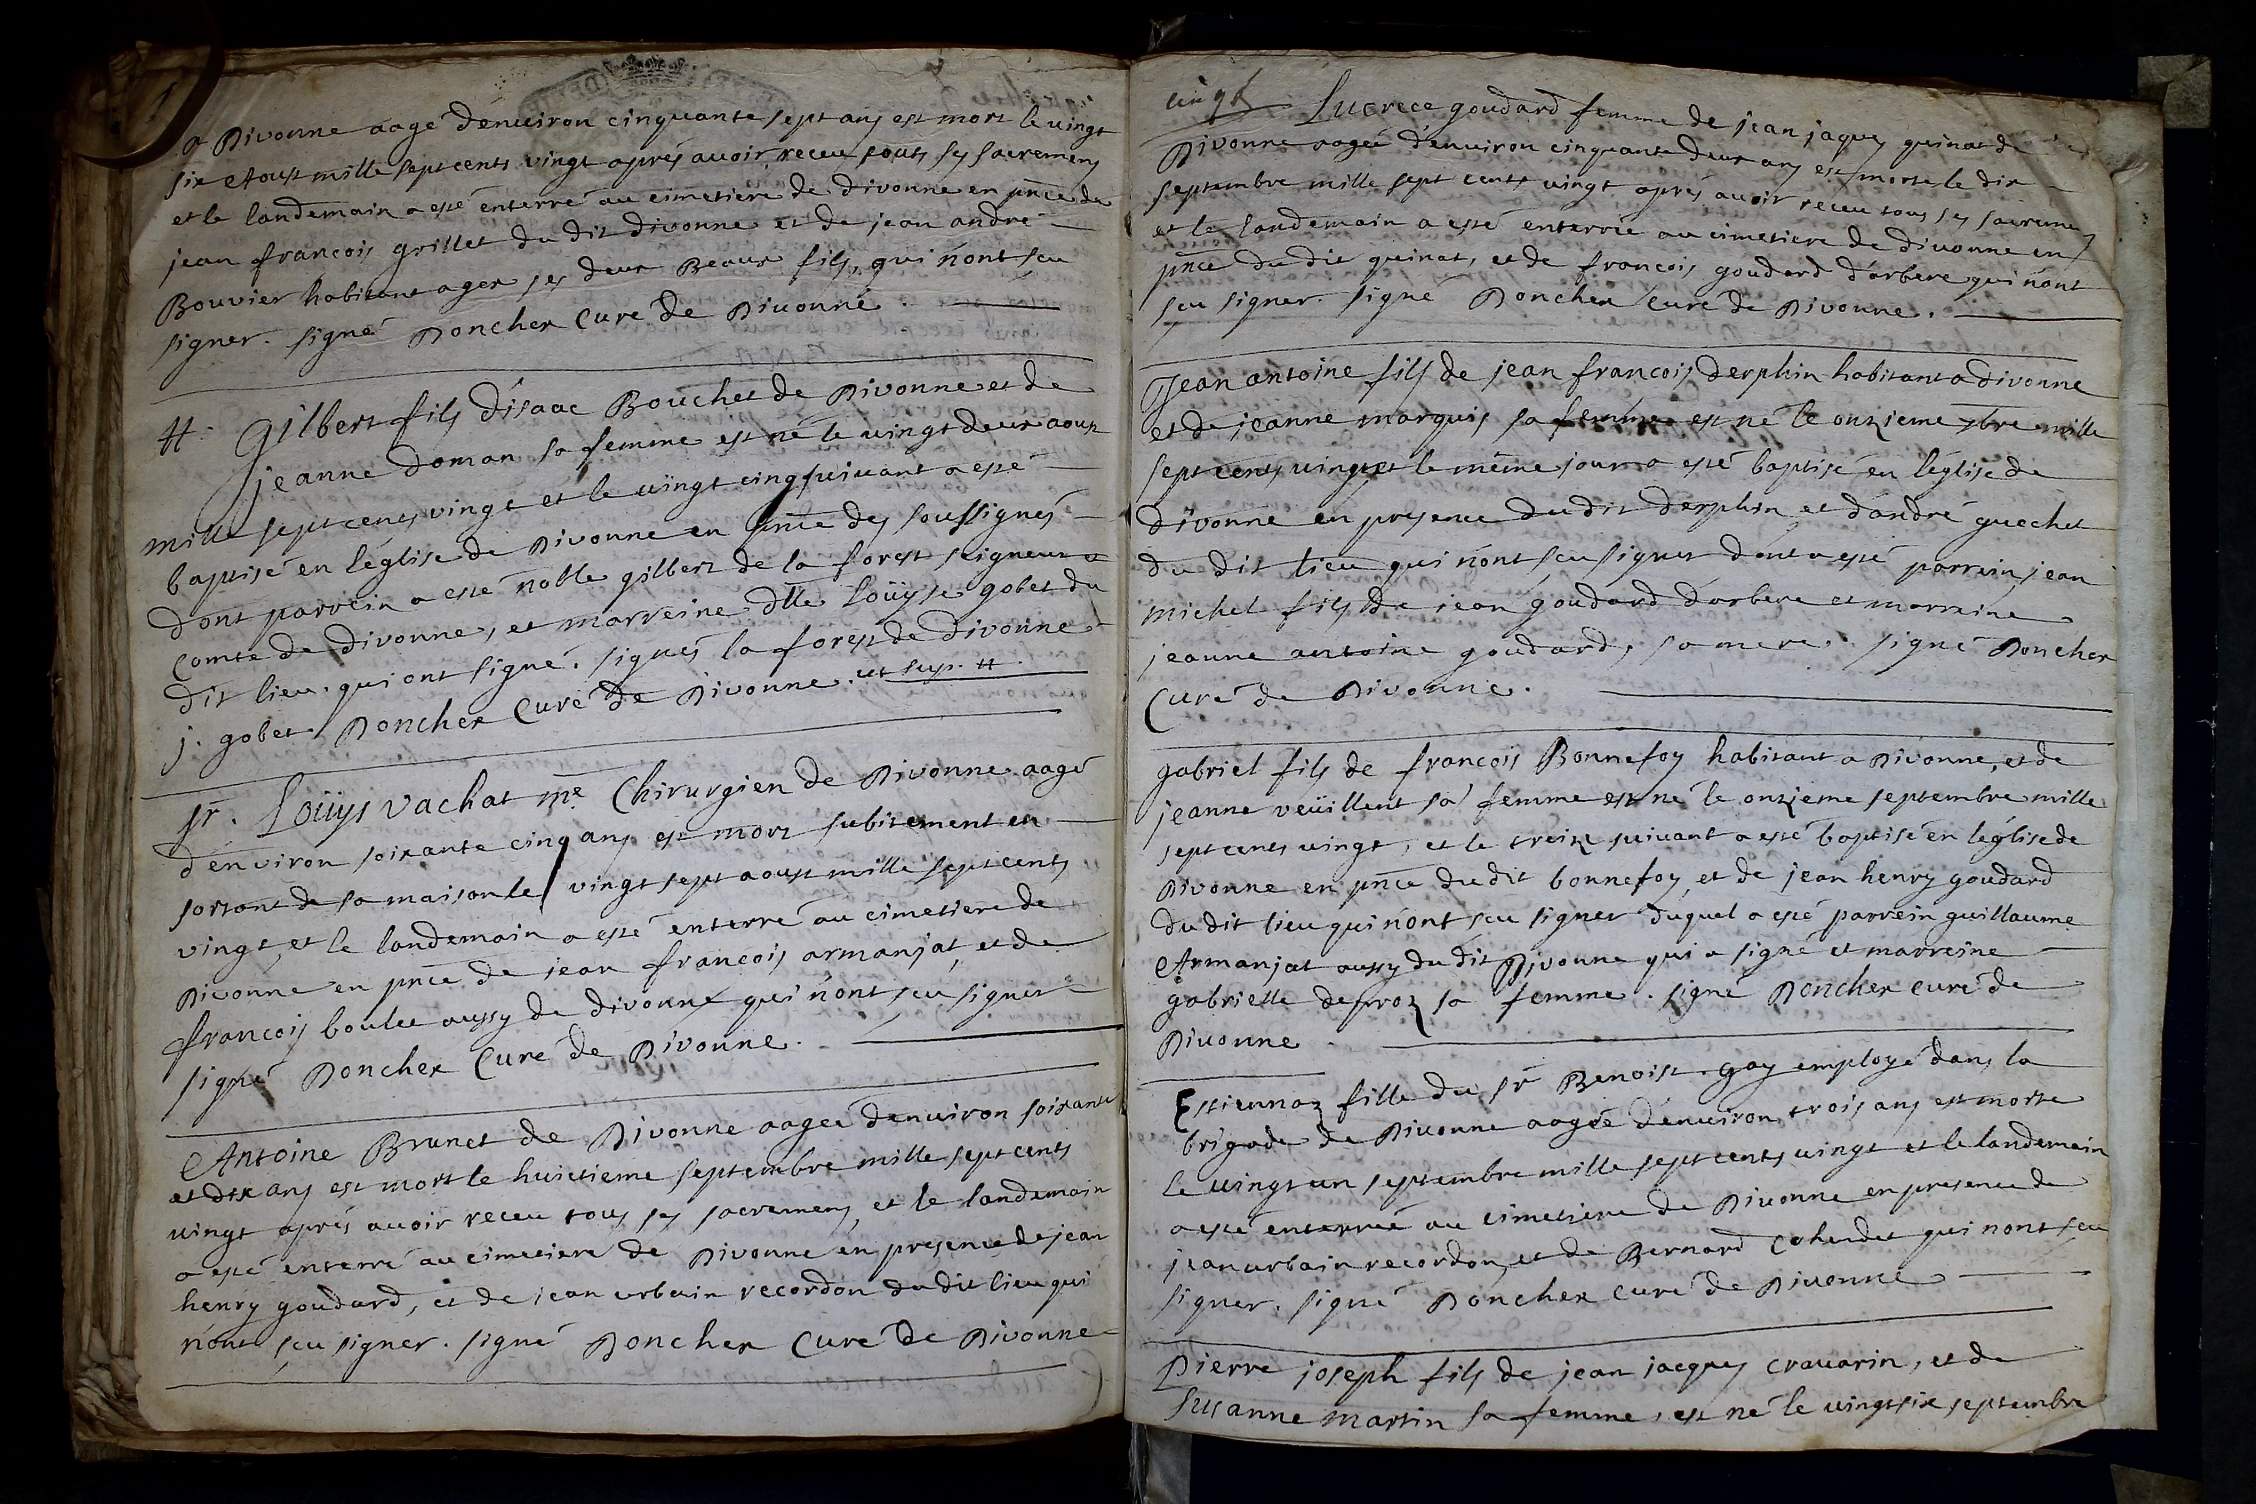 a Divonne aagé d'enuiron cinquante sept ans est mort le vingt
six Aoust mille sept cents vingt aprés auoir receu touts ses sacremens
et le landemain a esté enterré au cimetiere de divonne en pnce de
jean françois grillet du dit divonne et de jean andré
Bouvier habitant a gex ses deux Beaux fils, qui n'ont sçu
signer. signé Doncher Curé de Divonne.
#. Gilbert fils d'isaac Bouchet de Divonne et de
jeanne doman sa femme est né le vingt deux aoust
mille sept cents vingt et le vingt cinq suivant a esté
baptisé en l'église de Divonne en pnce des soussignés
dont parrein a esté noble gilbert de la forest seigneur et
Comte de divonne, et marreine dlle Loüyse gobet du
dit lieu. qui ont signé. signés la forest de divonne
j. gobet. Doncher Curé de Divonne. ut sup. #.
sr. Loüys vachat me Chirurgien de Divonne aagé
d'environ soixante cinq ans est mort subitement en
sortant de sa maison le vingt sept aoust mille sept cents
vingt, et le landemain a esté enterré au cimetiere de
Divonne en pnce de jean françois armanjat, et de
françois boulee aussy de divonne qui n'ont sçu signer
signé Doncher Curé de Divonne.
Antoine Brunet de Divonne aagée d'enuiron soixante
et dix ans est mort le huictieme septembre mille sept cents
vingt aprés auoir receu tous ses sacremens, et le landemain
a esté enterré au cimetiere de Divonne en presence de jean
henry goudard, et de jean urbain recordon du dit lieu qui
n'ont sçu signer. signé Doncher Curé de Divonne
vingt Lucrece goudard femme de jean jaques quinat de
Divonne aagée d'enuiron cinquante deux ans est morte le dix
septembre mille sept cents vingt aprés auoir receu tous ses sacremens
et le landemain a esté enterrée au cimetiere de divonne en
pnce du dit quinat, et de françois goudard d'arbere qui n'ont
sçu signer. signé Doncher Curé de Divonne.
Jean antoine fils de jean françois derphin habitant a divonne
et de jeanne marquis sa femme est né le onzieme 7bre mille
sept cents vingt et le méme jour a esté baptisé en l'église de
divonne en presence du dit derphin et d'andré guechet
du dit lieu qui n'ont sçu signer dont a esté parrein jean
michel fils de jean goudard d'arbere et marreine
jeanne antoine goudard, sa mere. signé Doncher
Curé de Divonne.
gabriel fils de françois Bonnefoy habitant a Divonne, et de
jeanne veüillent sa femme est né le onzieme septembre mille
sept cents vingt, et le treize suivant a esté baptisé en l'église de
Divonne en pnce du dit bonnefoy, et de jean henry goudard
du dit lieu qui n'ont sçu signer duquel a esté parrein guillaume
Armanjat aussy du dit Divonne qui a signé et marreine
gabrielle deproz sa femme. signé Doncher curé de
Divonne.
Estiennaz fille du sr Benoist gay employé dans la
brigade de Divonne aagée d'enuiron trois ans est morte
le vingt un septembre mille sept cents vingt et le landemain
a esté enterrée au cimetiere de Divonne en presence de
jean urbain recordon, et de Bernard Cohendet qui n'ont sçu
signer. signé Doncher curé de Divonne
Pierre joseph fils de jean jacques crauarin, et de
susanne martin sa femme, est né le vingt six septembre